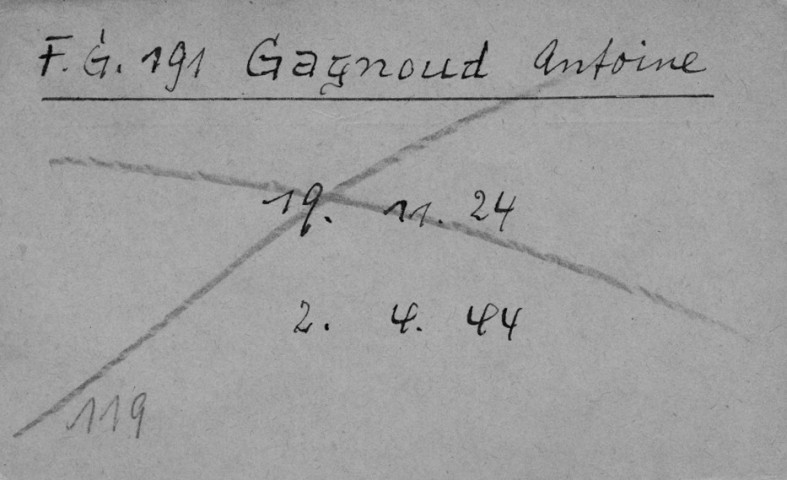 F.G. 191 Gagnoud Antoine
19. 11. 24
2. 4. 44
119